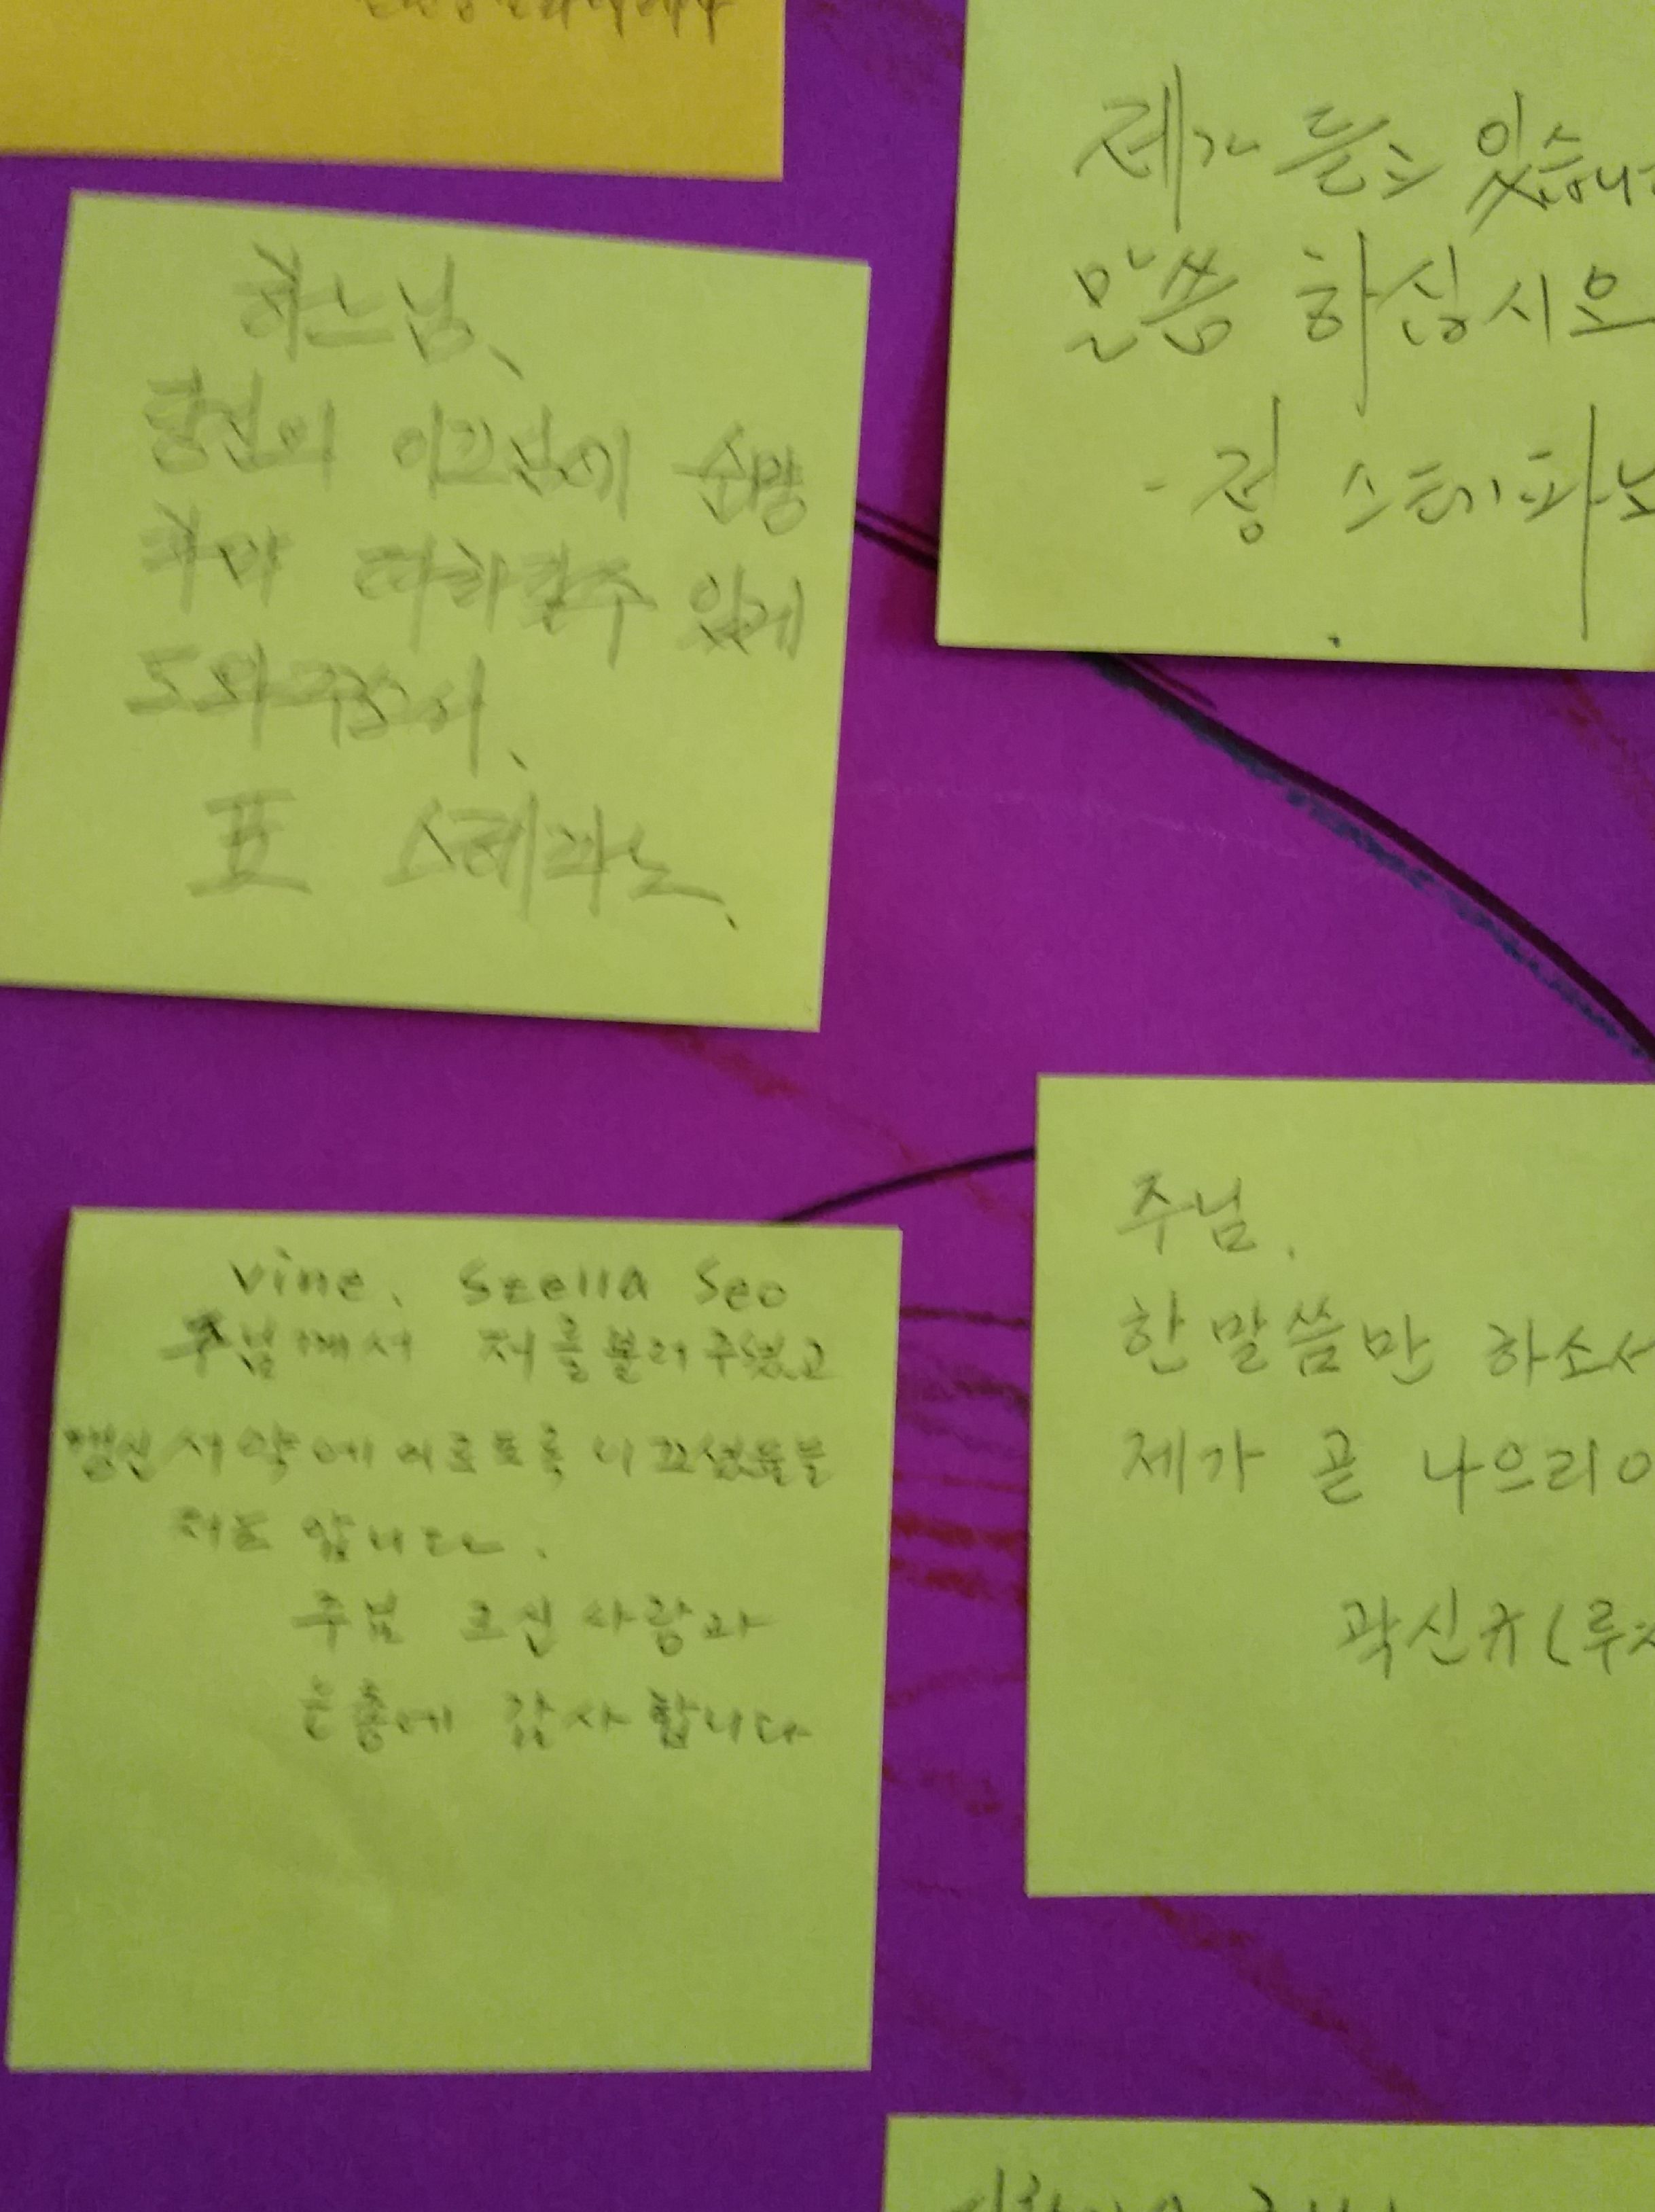 제가 듣고 있습니다
말씀 하십시오
- 정 스테파노
하느님,
당신의 이끄심에 순명
하며 따라갈수 있게
도와주소서,
표 스테파노,
vine, Stella Seo
주님께서 저를 불러주셨고
맹신 서약에 이르도록 이끄셨음을
저도 압니다.
주님 크신 사랑과
은총에 감사합니다
주님,
한 말씀만 하소서
제가 곧 나으리이
곽신규(루